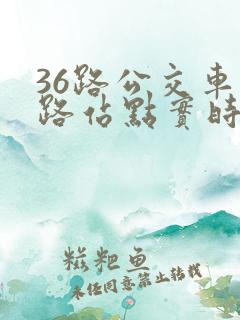 36路公交车
路佔點實時
糍粑鱼
未经同意禁止转载